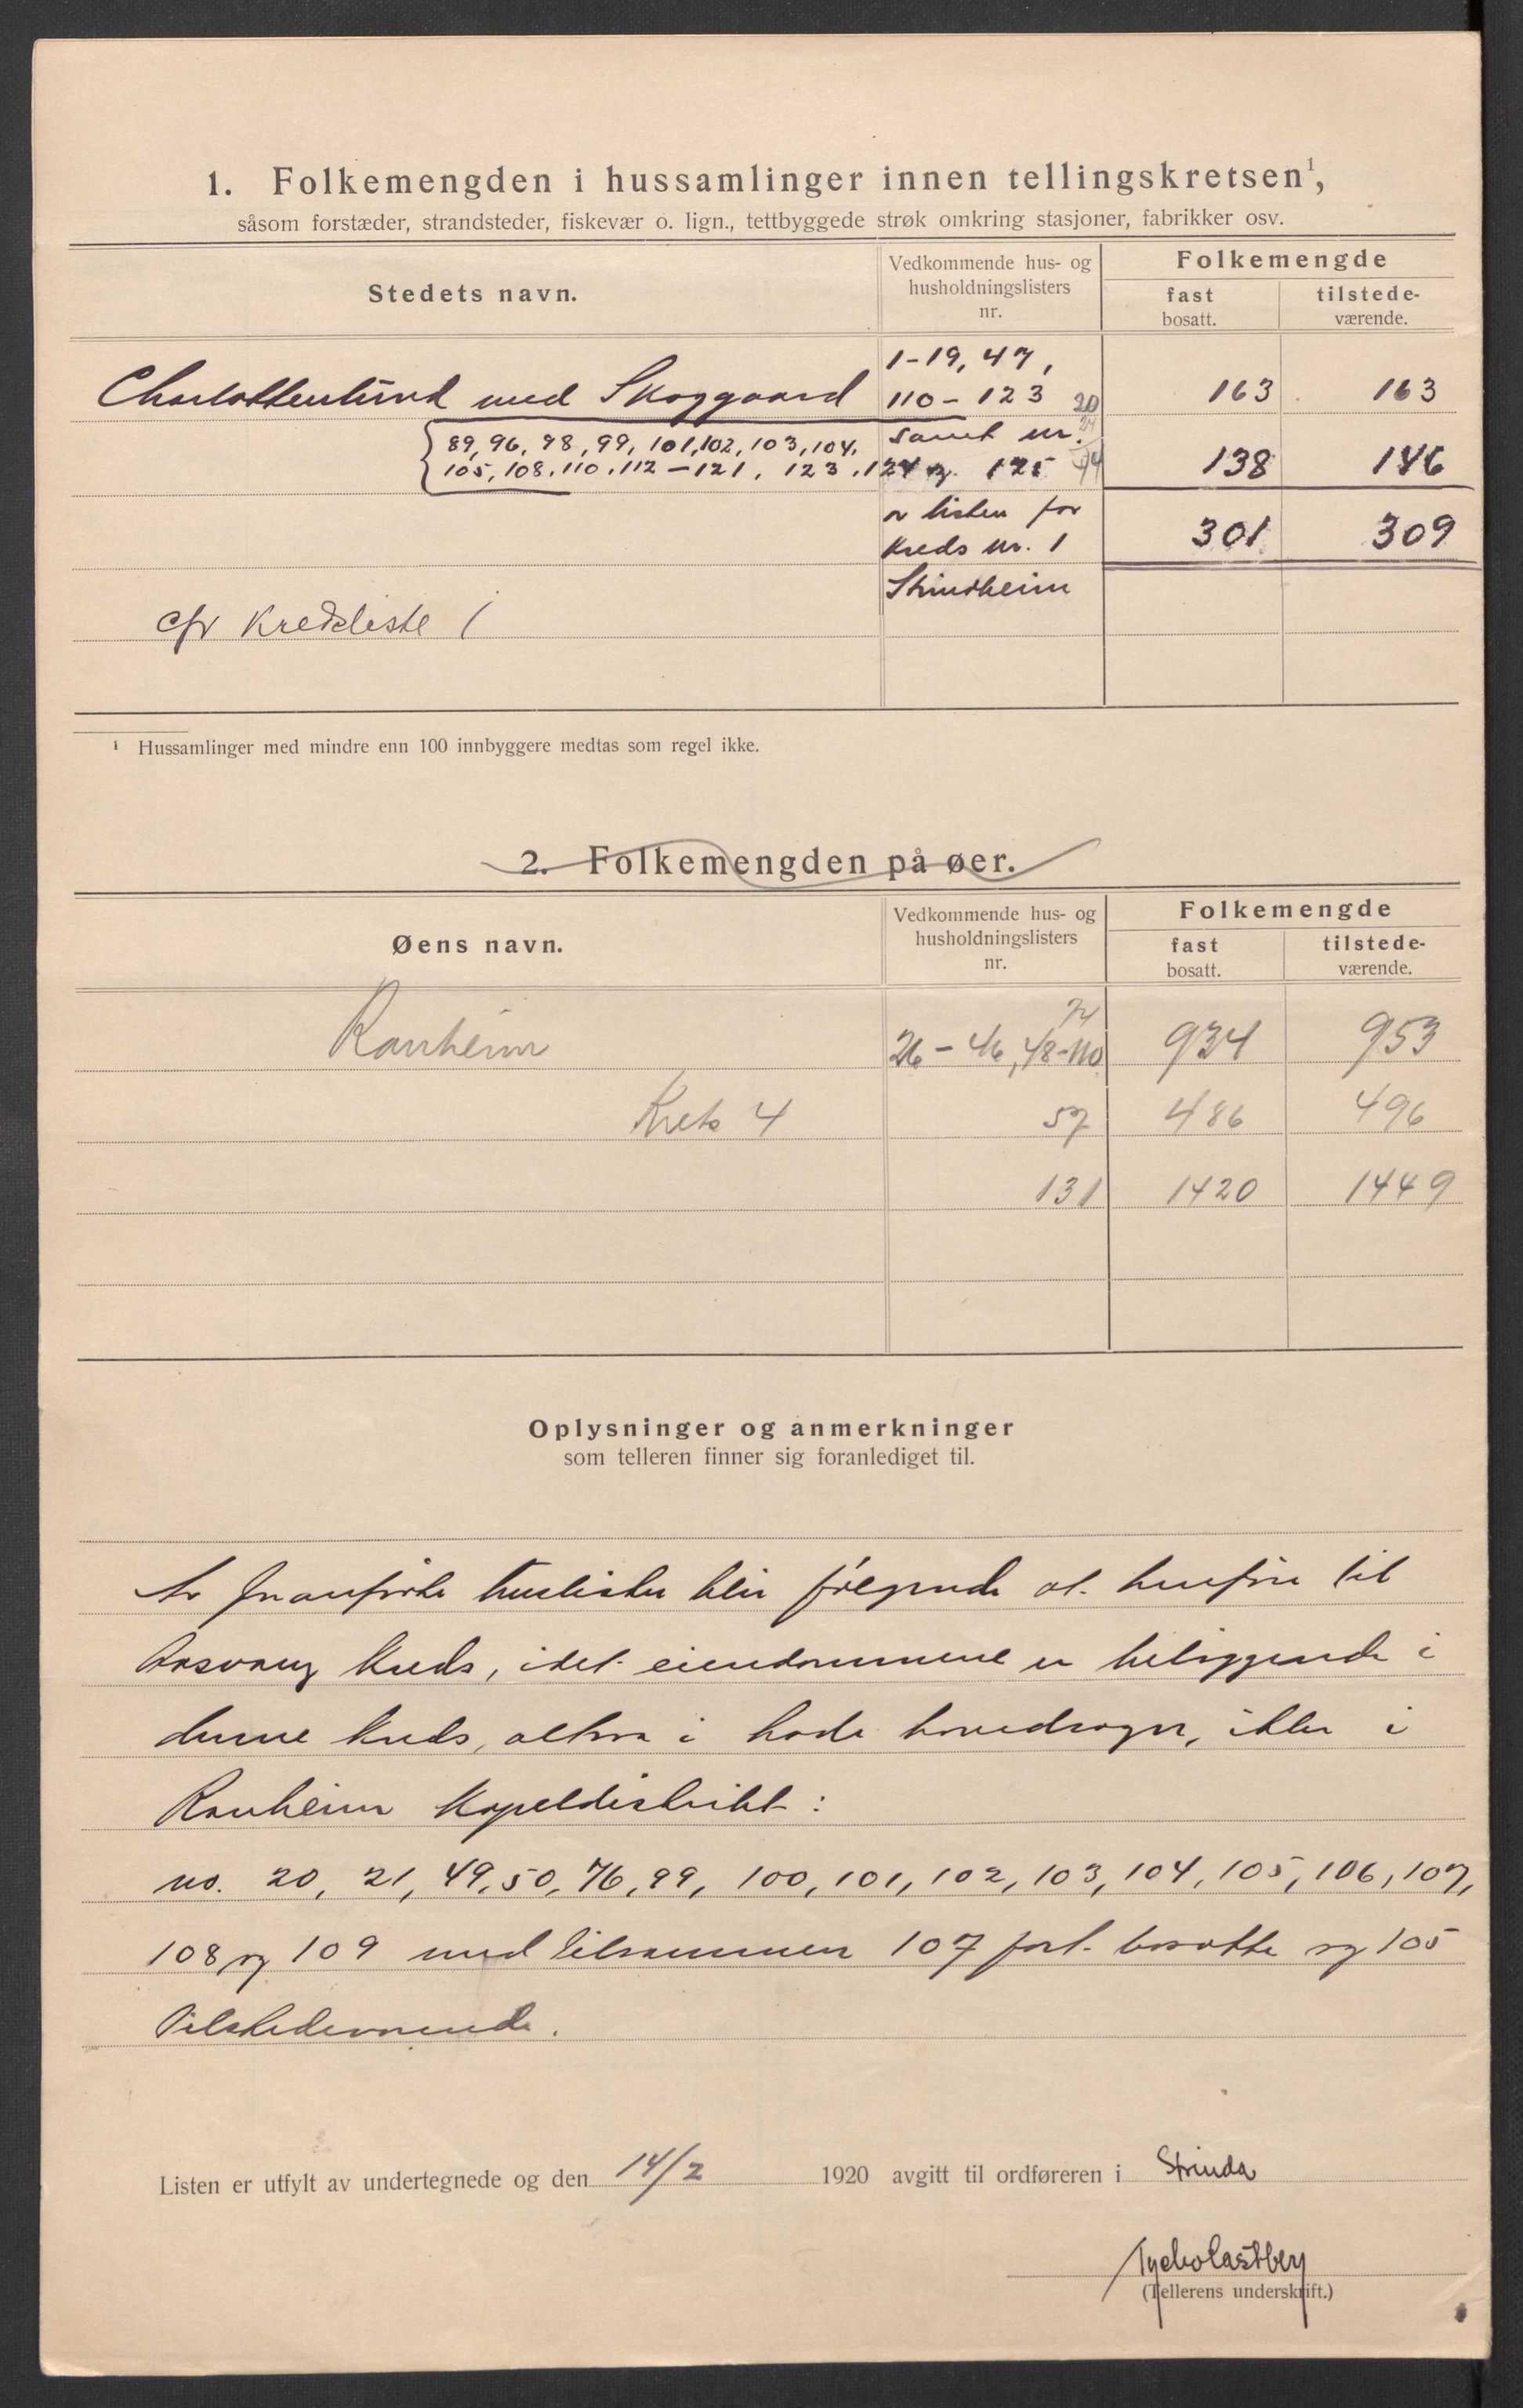 1. Folkemengden i hussamlinger innen tellingskretsen¹,
såsom forstæder, strandsteder, fiskevær o. lign., tettbyggede strøk omkring stasjoner, fabrikker osv.
Stedets navn.
Vedkommende hus- og
husholdningslisters
nr.
Folkemengde
fast
bosatt.
tilstede-
værende.
1-19, 47,
Charlottenlund med Skoggaard 110-123 20 163 163
89, 96, 98, 99, 101, 102, 103, 104, samt nr. 24
105, 108, 110, 112-121, 123, 124 og 125 44 138 146
av listen for
kreds nr. 1 301 309
Strindheim
cfr Kredsliste 1
¹ Hussamlinger med mindre enn 100 innbyggere medtas som regel ikke.
2. Folkemengden på øer.
Øens navn.
Vedkommende hus- og
husholdningslisters
nr.
Folkemengde
fast
bosatt.
tilstede-
værende.
74
Ranheim 26-46, 48-110 934 953
Krets 4 57 486 496
131 1420 1449
Oplysninger og anmerkninger
som telleren finner sig foranlediget til.
Av huslister blir følgende at henføre til
kreds, idet eiendommene er beliggende i
denne kreds, altsaa i Lade hovedsogn, ikke i
Ranheim Kapeldistrikt:
no. 20, 21, 49, 50, 76, 99, 100, 101, 102, 103, 104, 105, 106, 107,
108 og 109 med tilsammen 107 fast bosatte og 105
Tilstedeværende.
Listen er utfylt av undertegnede og den 14/2 1920 avgitt til ordføreren i Strinda
Tycho Castberg
(Tellerens underskrift.)